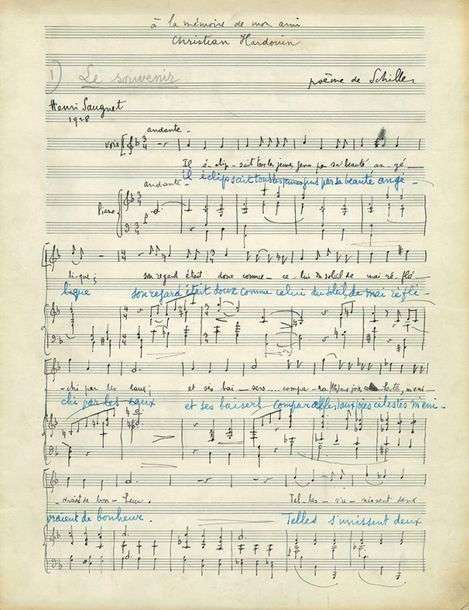 à la mémoire de mon ami
Christian Hardouin
1) Le souvenir
poème de Schiller
Henri Sauguet
1928
andante
voix
Il é-clip-sait tous les jeunes gens par sa beauté an-gé-
il éclipsait tous les jeunes gens par sa beauté angé-
andante
Piano
p
-lique; son regard était doux comme ce-lui du soleil de mai ré-flé-
lique son regard était doux comme celui du soleil de mai réflé-
-chi par les eaux; et ses bai-sers
chi par les eaux et ses baisers
-draient de bon-heur. Tel-les s'u-nissent deux
vraient de bonheur. Telles s'unissent deux